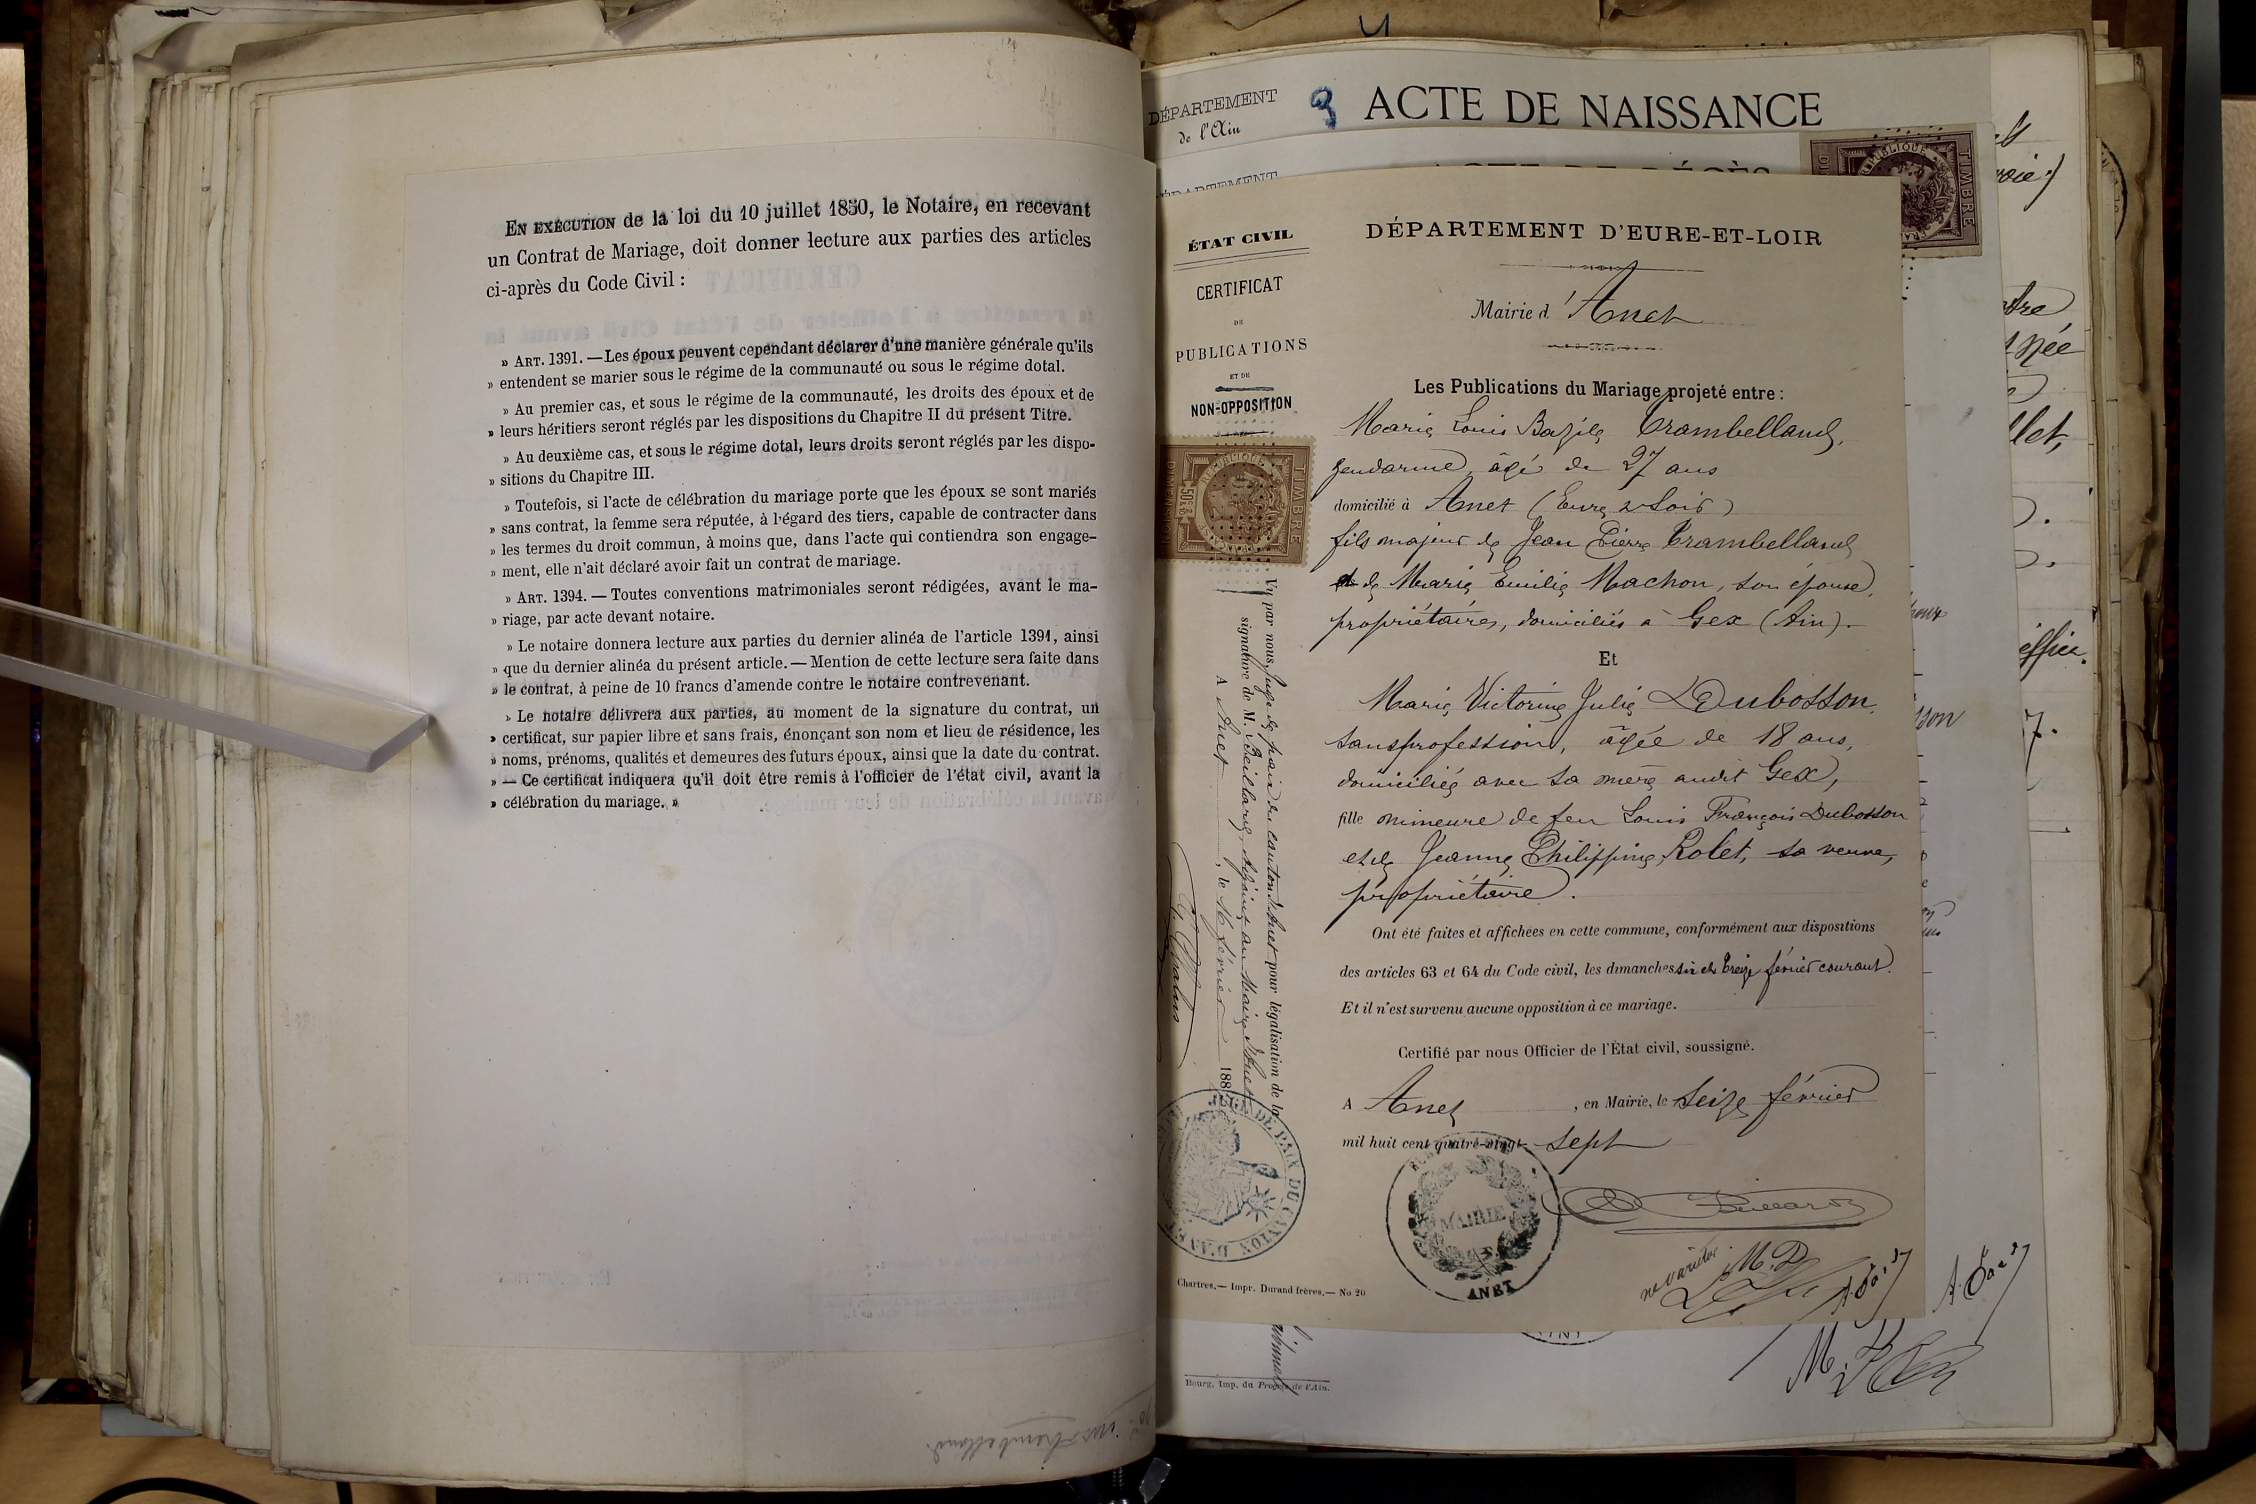 EN EXÉCUTION de la loi du 10 juillet 1850, le Notaire, en recevant
un Contrat de Mariage, doit donner lecture aux parties des articles
ci-après du Code Civil :
» ART. 1391. — Les époux peuvent cependant déclarer d'une manière générale qu'ils
» entendent se marier sous le régime de la communauté ou sous le régime dotal.
» Au premier cas, et sous le régime de la communauté, les droits des époux et de
» leurs héritiers seront réglés par les dispositions du Chapitre II du présent Titre.
» Au deuxième cas, et sous le régime dotal, leurs droits seront réglés par les dispo-
» sitions du Chapitre III.
» Toutefois, si l'acte de célébration du mariage porte que les époux se sont mariés
» sans contrat, la femme sera réputée, à l'égard des tiers, capable de contracter dans
» les termes du droit commun, à moins que, dans l'acte qui contiendra son engage-
» ment, elle n'ait déclaré avoir fait un contrat de mariage.
» ART. 1394. — Toutes conventions matrimoniales seront rédigées, avant le ma-
» riage, par acte devant notaire.
» Le notaire donnera lecture aux parties du dernier alinéa de l'article 1391, ainsi
» que du dernier alinéa du présent article. — Mention de cette lecture sera faite dans
» le contrat, à peine de 10 francs d'amende contre le notaire contrevenant.
» Le notaire délivrera aux parties, au moment de la signature du contrat, un
» certificat, sur papier libre et sans frais, énonçant son nom et lieu de résidence, les
» noms, prénoms, qualités et demeures des futurs époux, ainsi que la date du contrat.
» — Ce certificat indiquera qu'il doit être remis à l'officier de l'état civil, avant la
» célébration du mariage. »
DÉPARTEMENT
de l'Ain
ACTE DE NAISSANCE
DÉPARTEMENT
ACTE DE DÉCÈS
ÉTAT CIVIL
CERTIFICAT
DE
PUBLICATIONS
ET DE
NON-OPPOSITION
TIMBRE
RÉPUBLIQUE
Vu par nous, Juge de paix du canton d'Anet pour légalisation de la
signature de M. adjoint au Maire d'Anet
A Anet, le 16 février 188
JUGE DE PAIX DU CANTON D'ANET
DÉPARTEMENT D'EURE-ET-LOIR
Mairie d'Anet
Les Publications du Mariage projeté entre :
Marie Louis Bazile Crambelland,
gendarme, âgé de 27 ans
domicilié à Anet (Eure et Loir)
fils majeur de Jean Pierre Crambelland
et de Marie Emilie Machon, son épouse,
propriétaires, domiciliés à Gex (Ain).
Et
Marie Victorine Julie Dubosson,
sans profession, âgée de 18 ans,
domiciliée avec sa mère audit Gex,
fille mineure de feu Louis François Dubosson
et de Jeanne Philippine Rolet, sa veuve,
propriétaire.
Ont été faites et affichées en cette commune, conformément aux dispositions
des articles 63 et 64 du Code civil, les dimanches six et treize février courant.
Et il n'est survenu aucune opposition à ce mariage.
Certifié par nous Officier de l'État civil, soussigné.
A Anet, en Mairie, le seize février
mil huit cent quatre-vingt-sept
MAIRIE
ANET
ne varietur
M. D.
Chartres. — Impr. Durand frères. — No 20
Bourg, Imp. du Progrès de l'Ain.